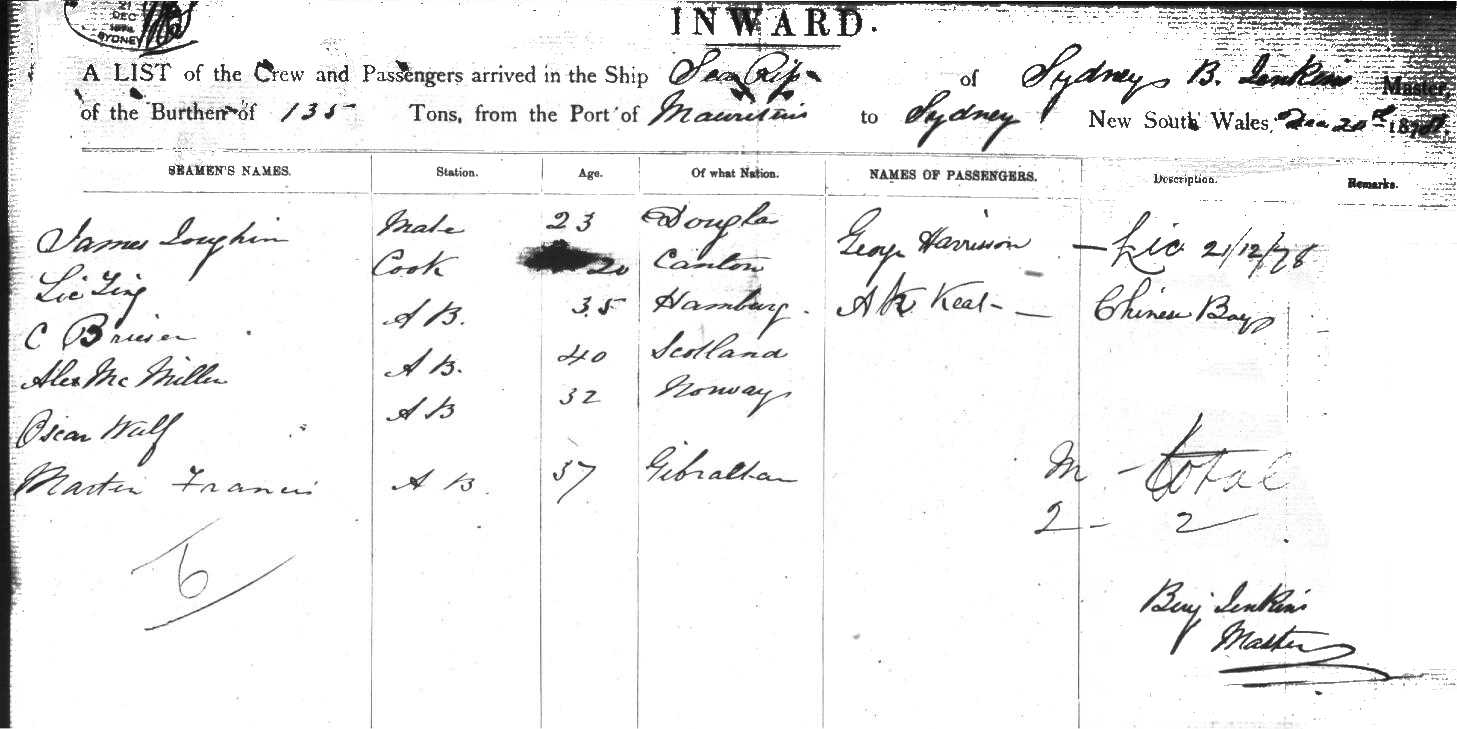 21
DEC
1878
SYDNEY
INWARD.
A LIST of the Crew and Passengers arrived in the Ship Sea Rip of Sydney B. Jenkins Master,
of the Burthen of 135 Tons, from the Port of Mauritius to Sydney New South Wales, Dec 20th 1878
SEAMEN'S NAMES. Station. Age. Of what Nation. NAMES OF PASSENGERS. Description. Remarks.
James Loughin Mate 23 Douglas George Harrison — 21/12/78
Cook 20 Canton
C A B. 35 Hamburg. A K Keat — Chinese Boy
Alex Mc Millen A B. 40 Scotland
Oscar Wulf A B 32 Norway
Martin Francis A B. 37 Gibraltar
M - total
2 - 2
6
Benj Jenkins
Master